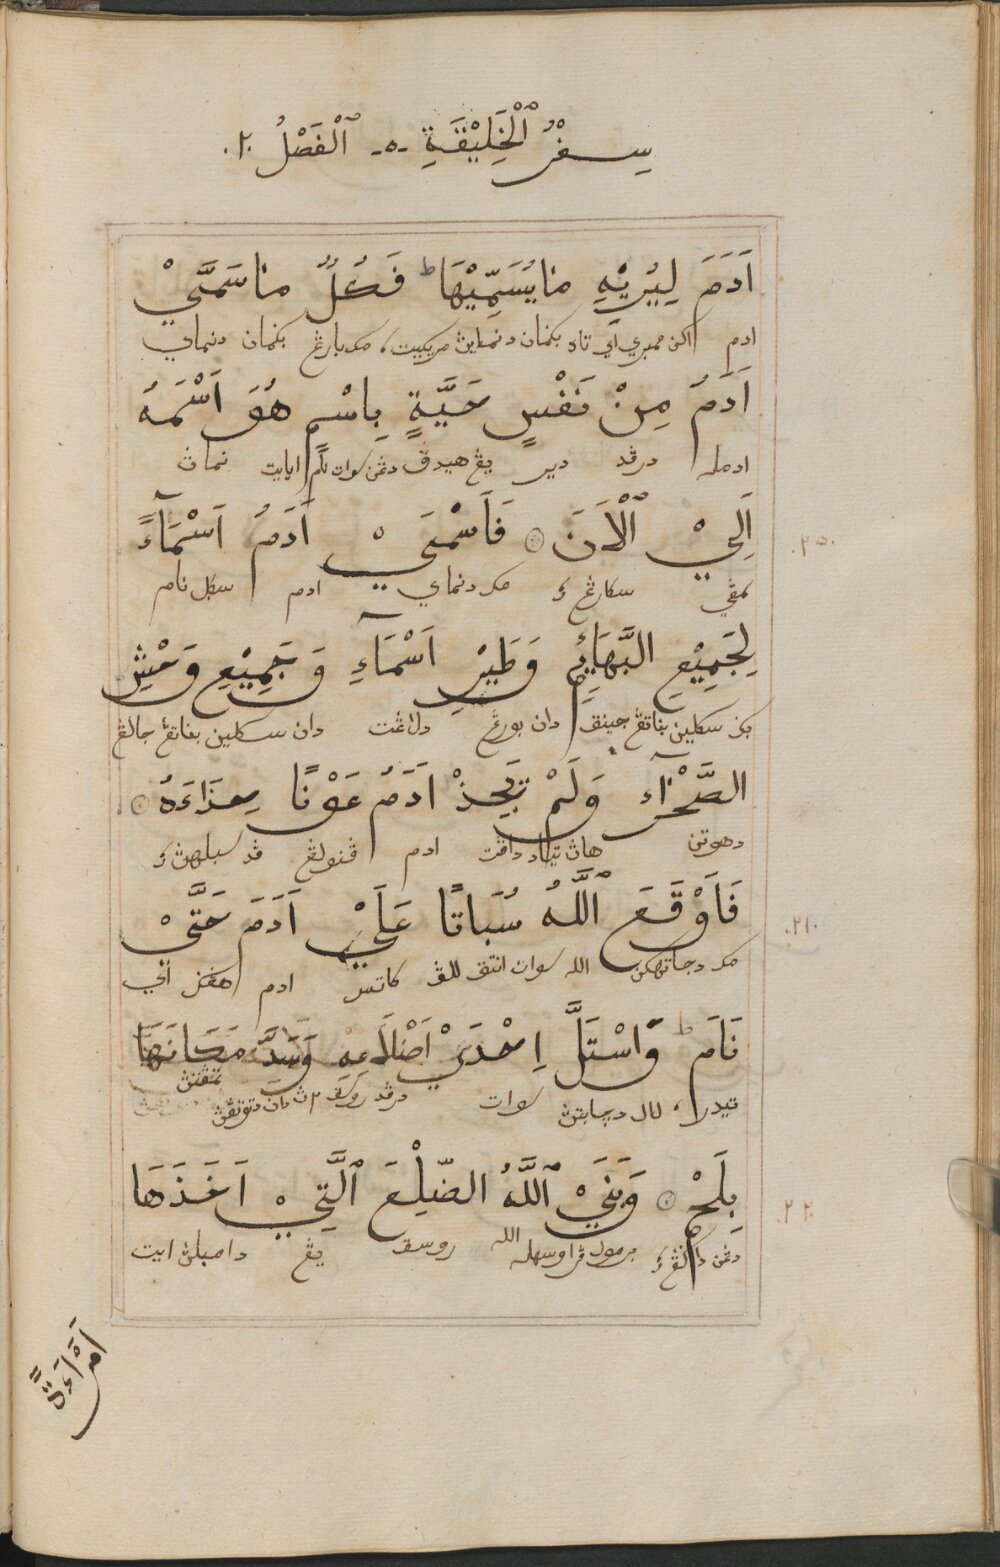 سِفْرُ ٱلْخَلِيْقَةِ -٥- ٱلْفَصْلُ ٢٠
اَدَمَ لِيُرِيْهِ مَايُسَمِّيْهَا ط فَكُلُّ مَاسَمَّيْ
ادم اكن ممبري اي تاد بكمان دنماين مريكيت، مك بارڠ بكمان دنماي
اَدَمُ مِنْ نَفْسٍ حَيَّةٍ بِاسْمٍ هُوَ اَسْمَهُ
ادمله درڤد دير يڠ هيدڤ دڠن سوات نام ايايت نماڽ
اَلِيْ ٱلْاَنَ ۞ فَاَسْمَيْ اَدَمُ اَسْمَآءً
سكارڠ مك دنماي ادم سكل نام
٢٠٠
لِجَمِيْعِ الْبَهَائِمِ وَطَيْرِ اَسْمَآءِ وَجَمِيْعِ وَحْشِ
سكلين بناتڠ جينق دان بورڠ دلاڠت دان سكلين بناتڠ جالڠ
الصَّحْرَآء وَلَمْ يَجِذْ اَدَمُ عَوْنًا بِحِذَاءَهُ ۞
دهوتن هاڽ تياد داڤت ادم ڤنولڠ ڤد سبلهڽ
فَاَوْقَعَ ٱللّٰهُ سُبَاتًا عَلَيْ اَدَمَ حَتَّيْ
مك دجاتهكن الله سوات انتق للڤ كاتس ادم هڠڬ اي
٢١٠
نَامَ ط وَاسْتَلَّ اِحْدَيْ اَضْلَاعِهِ وَسَدَّ مَكَانَهَا
تيدر، لال دچابتڽ سوات درڤد روسقڽ دان دتوتڤڽ تمڤتڽ
بِلَحْمٍ ۞ وَبَنَيْ ٱللّٰهُ الضِّلْعَ ٱلَّتِيْ اَخَذَهَا
دڠن داڬڠ الله روسق يڠ دامبلڽ ايت
٢٢٠
اَمْرَاَةً